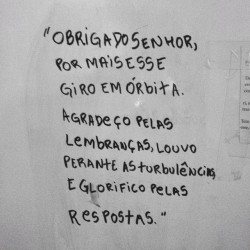 "OBRIGADO SENHOR,
POR MAIS ESSE
GIRO EM ÓRBITA.
AGRADEÇO PELAS
LEMBRANÇAS, LOUVO
PERANTE AS TURBULÊNCIAS
E GLORIFICO PELAS
RESPOSTAS."